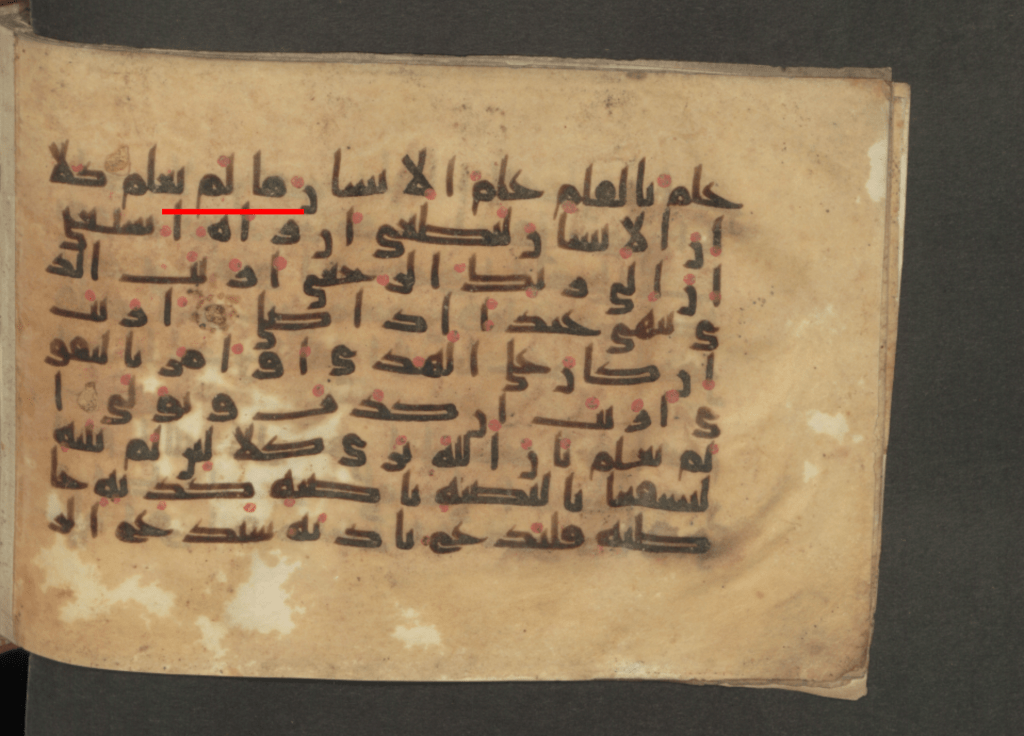 علم بالقلم علم الانسان ما لم يعلم كلا
ان الانسان ليطغى ان راه استغنى
ان الى ربك الرجعى اريت الذ
ى ينهى عبدا اذا صلى اريت
ان كان على الهدى او امر بالتقو
ى اريت ان كذب وتولى ا
لم يعلم بان الله يرى كلا لين لم ينته
لنسفعا بالنصيه ناصيه كذبه خا
طيه فليدع ناديه سندع الز